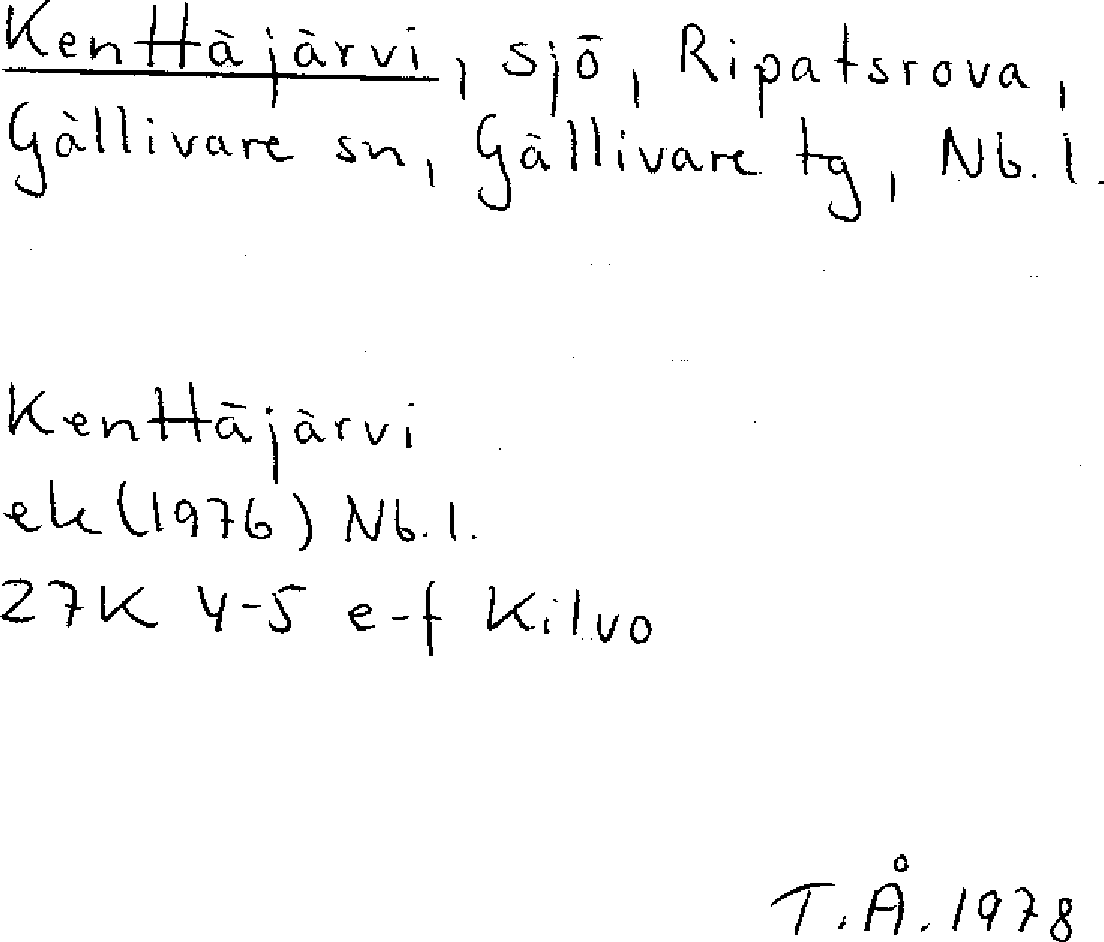 Kenttäjärvi, sjö, Ripatsrova,
Gällivare sn, Gällivare tg, Nb. l.
Kenttäjärvi
ek (1976) Nb. l.
27K 4-5 e-f Kilvo
T.Å. 1978